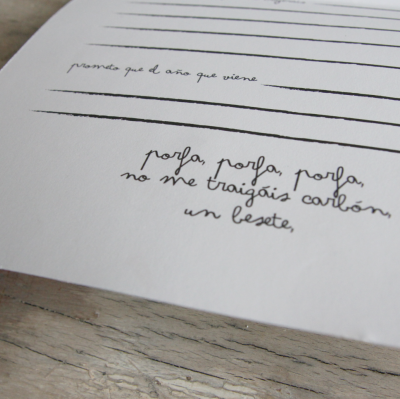 prometo que el año que viene
porfa, porfa, porfa,
no me traigáis carbón,
un besete,